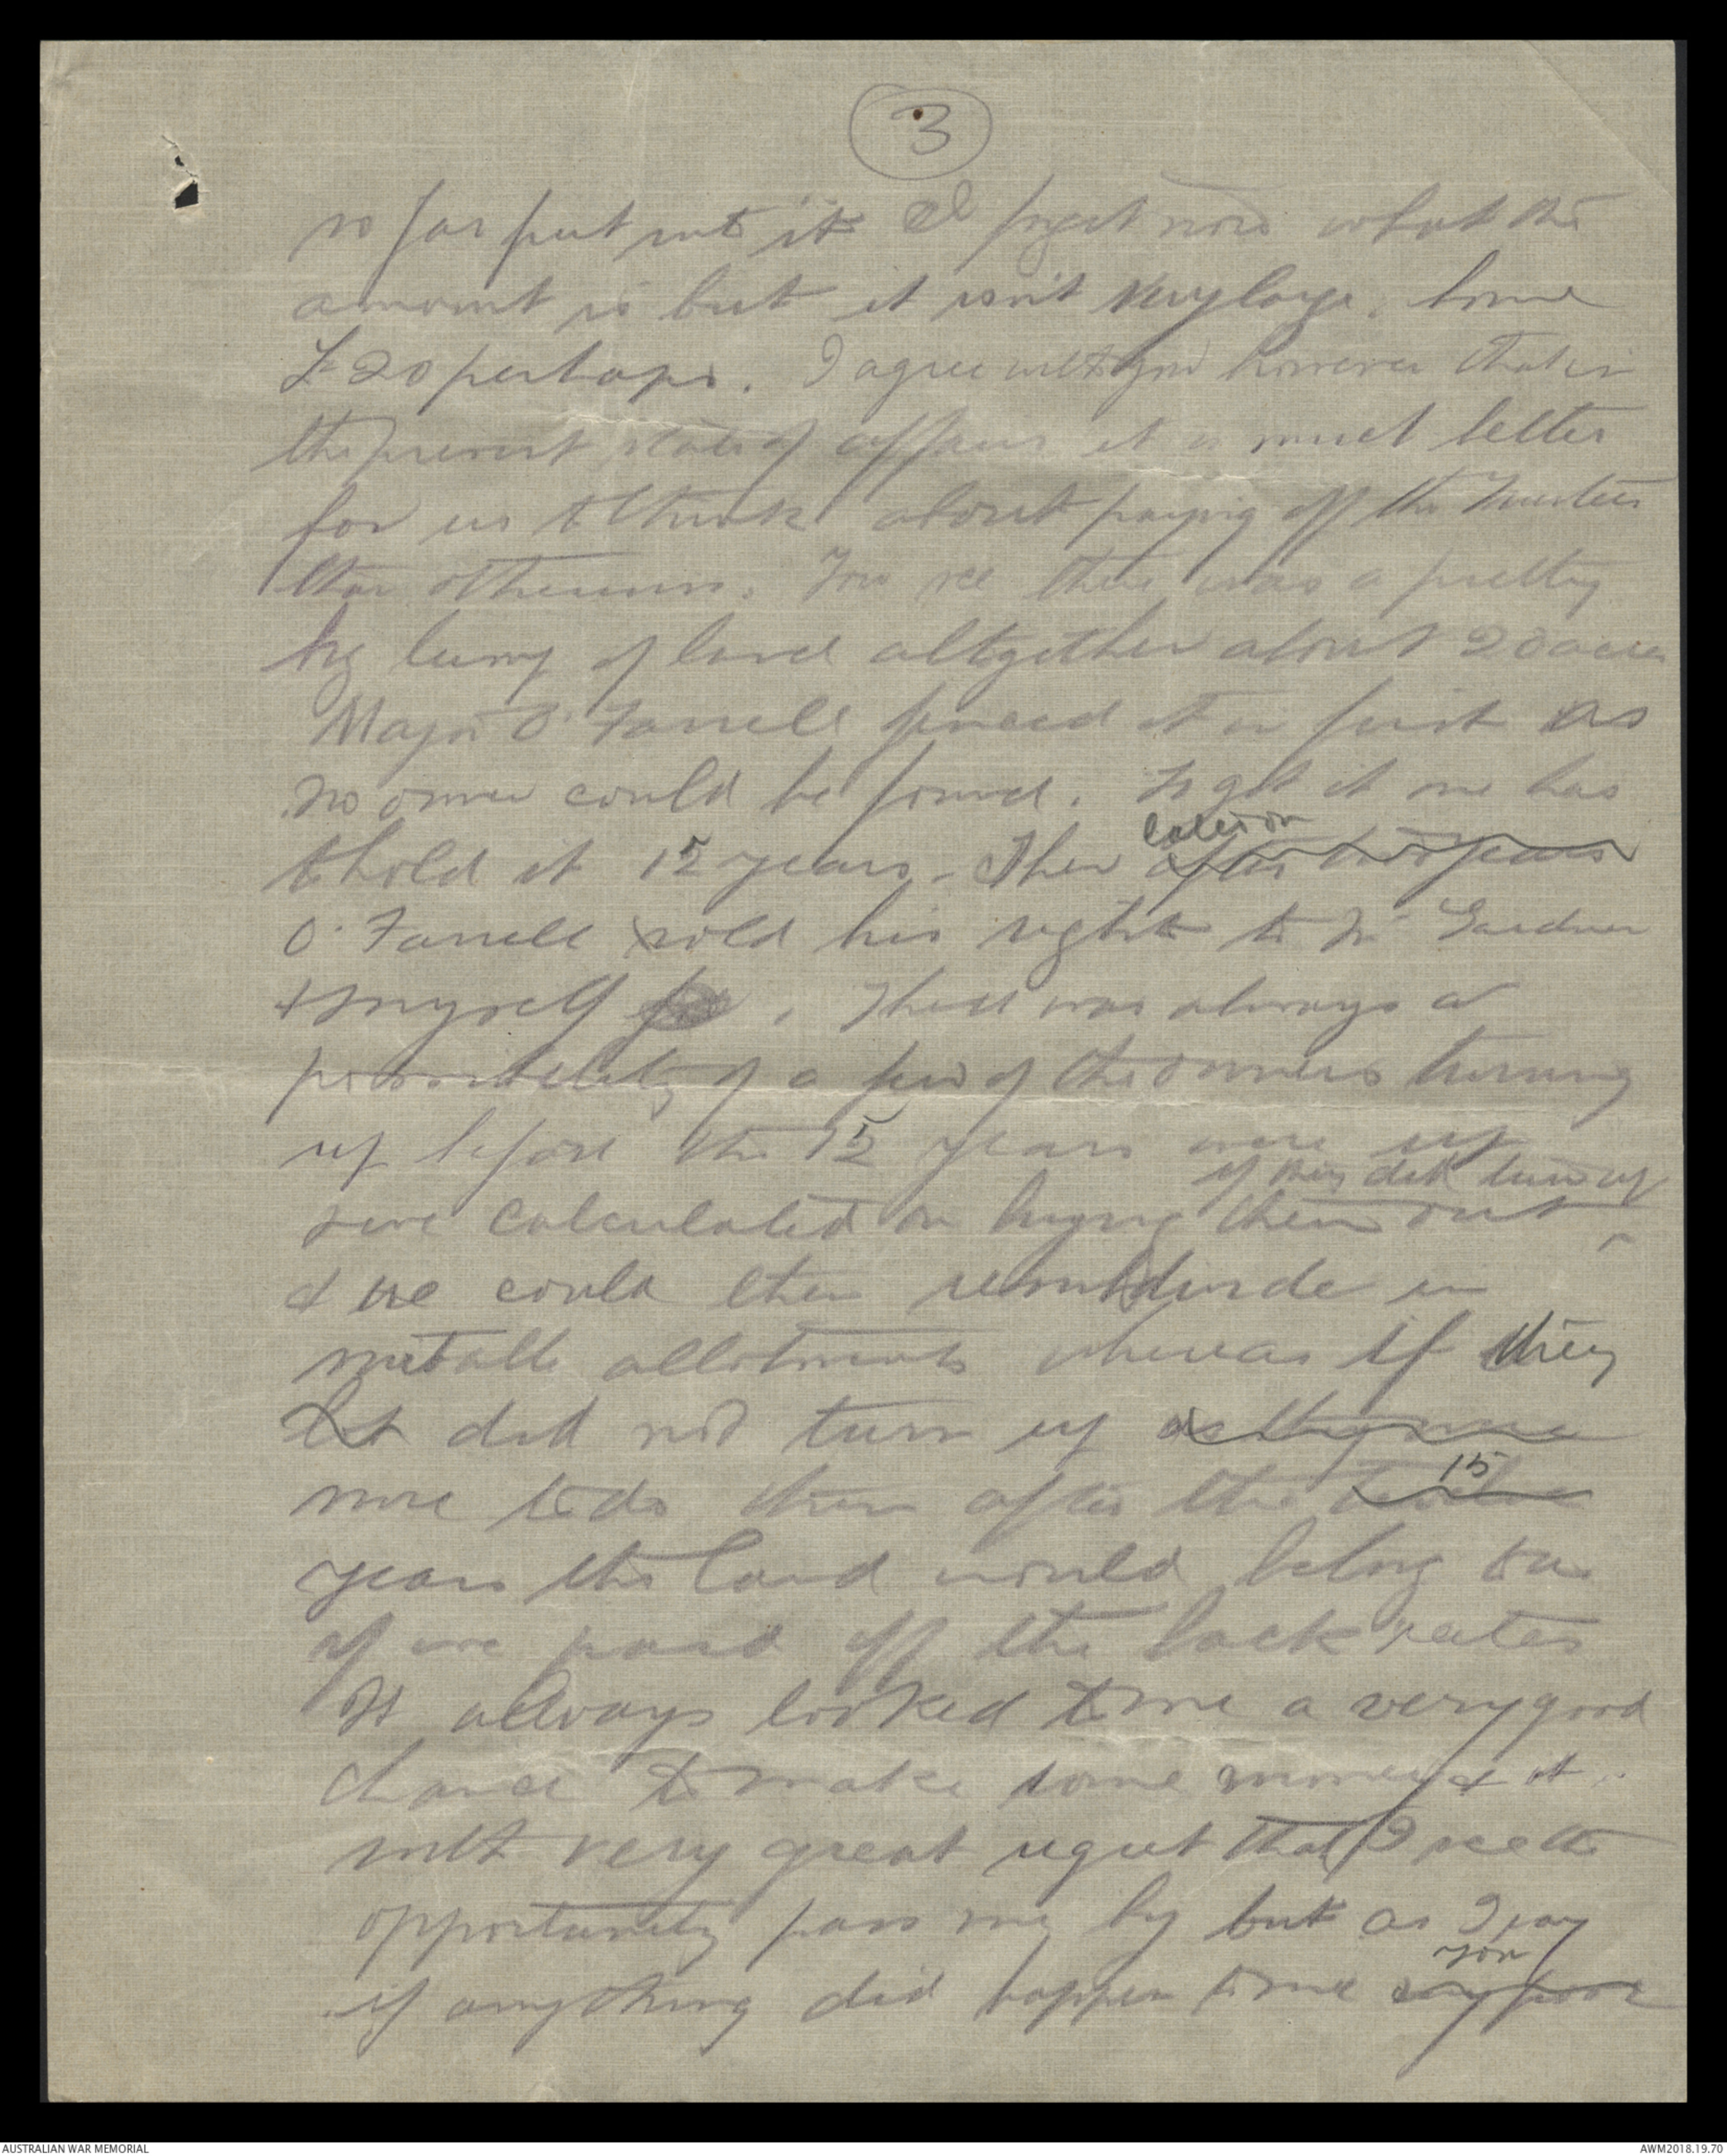 3
so far put into it I forget now what the
amount is but it isn't very large, some
£20 perhaps. I agree with you however that in
the present state of affairs it is much better
for us to think about paying off the Trustees
than otherwise. You see there was a pretty
big lump of land altogether about 20 acres
Major O'Farrell fenced it in first as
no owner could be found. To get it one has
to hold it 15 years. Then after two years
later on
O'Farrell sold his right to Mr Gardner
& myself. There was always a
possibility of a few of the owners turning
up before the 15 years were up
if they did turn up
& we calculated on buying them out ^
& we could then resubdivide in
suitable allotments whereas if they
did not turn up
more to do then after the
15
years the land would belong to us
if we paid off the back rates
It always looked to me a very good
chance to make some money & it is
with very great regret that I see the
opportunity pass me by but as I say
you
if anything did happen to me